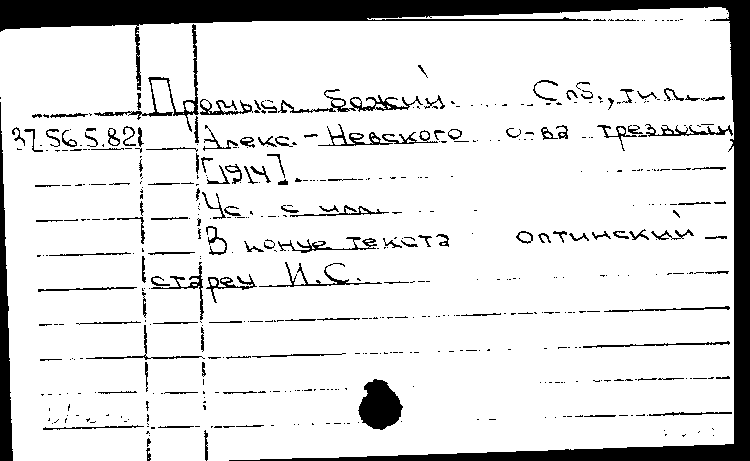 Промысл Божий. Спб., тип.
37.56.5.82 Алекс.-Невского о-ва трезвости,
[1914].
4с. с илл.
В конце текста оптинский
старец И.С.